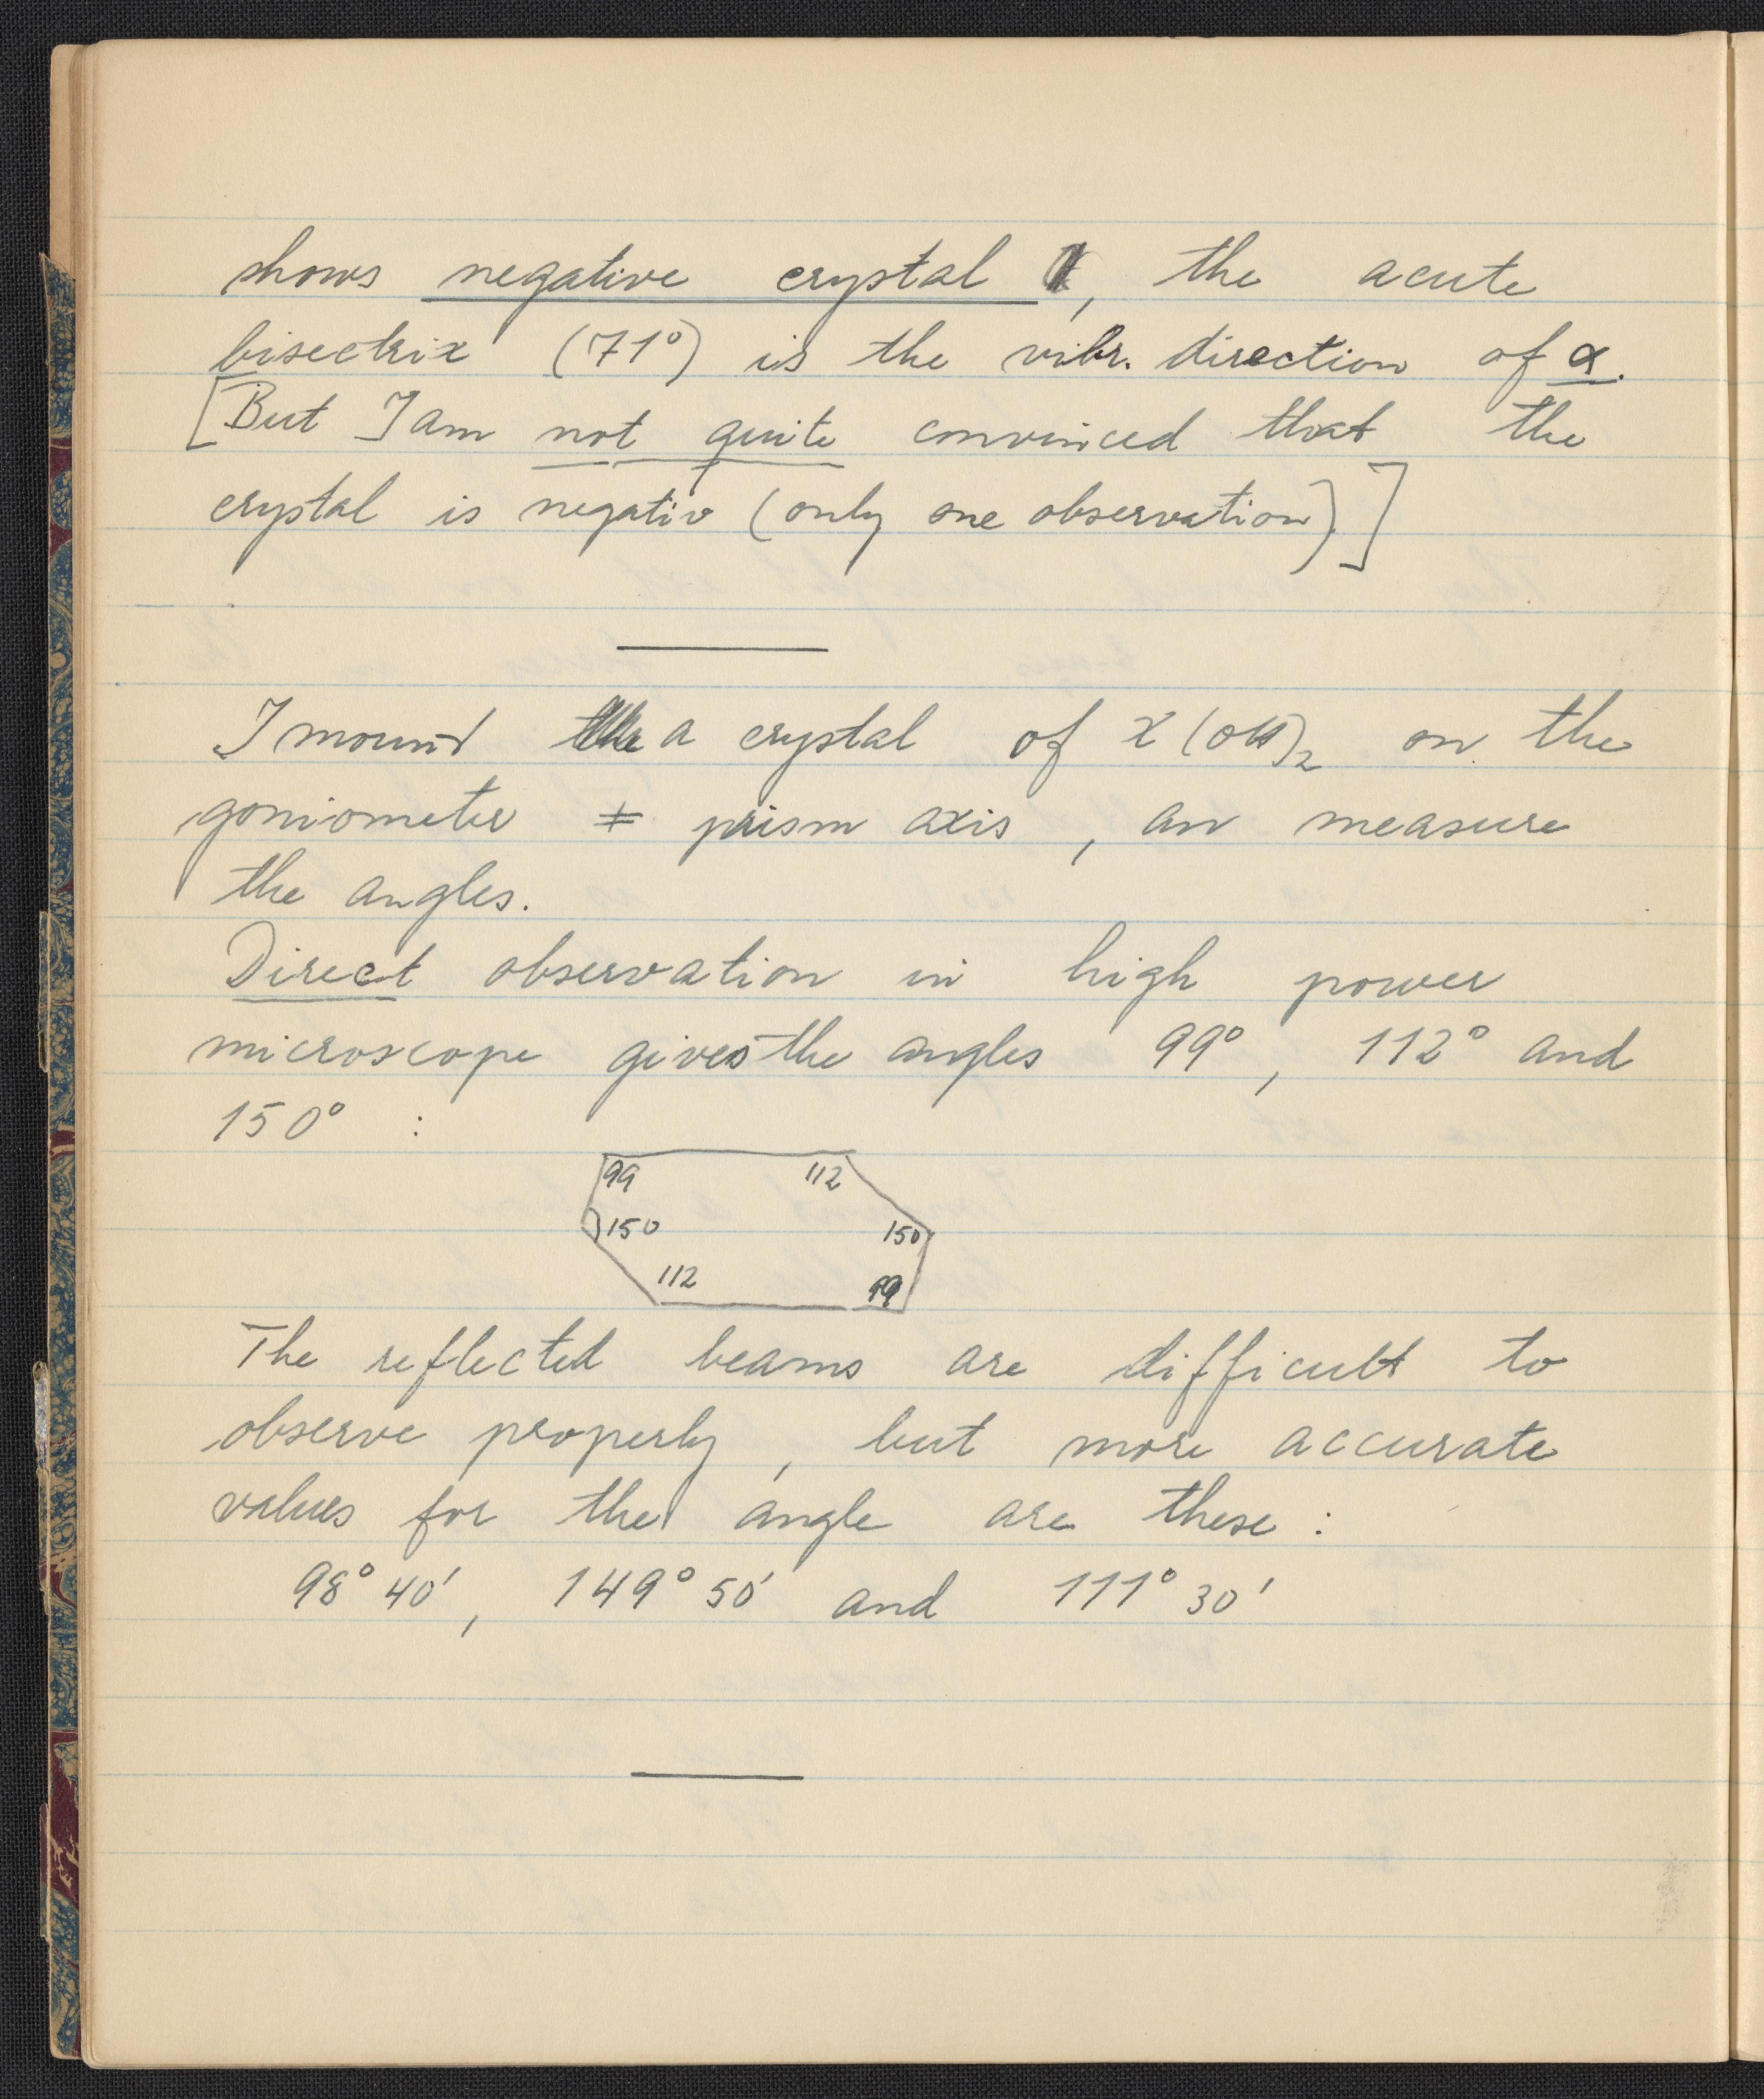 shows negative crystal , the acute
bisectrix (71°) is the vibr. direction of α.
[But I am not quite convinced that the
crystal is negativ (only one observation)]
I mount a crystal of X(OH)2 on the
goniometer ≠ prism axis, an measure
the angles.
Direct observation in high power
microscope gives the angles 99°, 112° and
150° :
99 112
150 150
112 99
The reflected beams are difficult to
observe properly, but more accurate
values for the angle are these :
98° 40', 149° 50' and 111° 30'